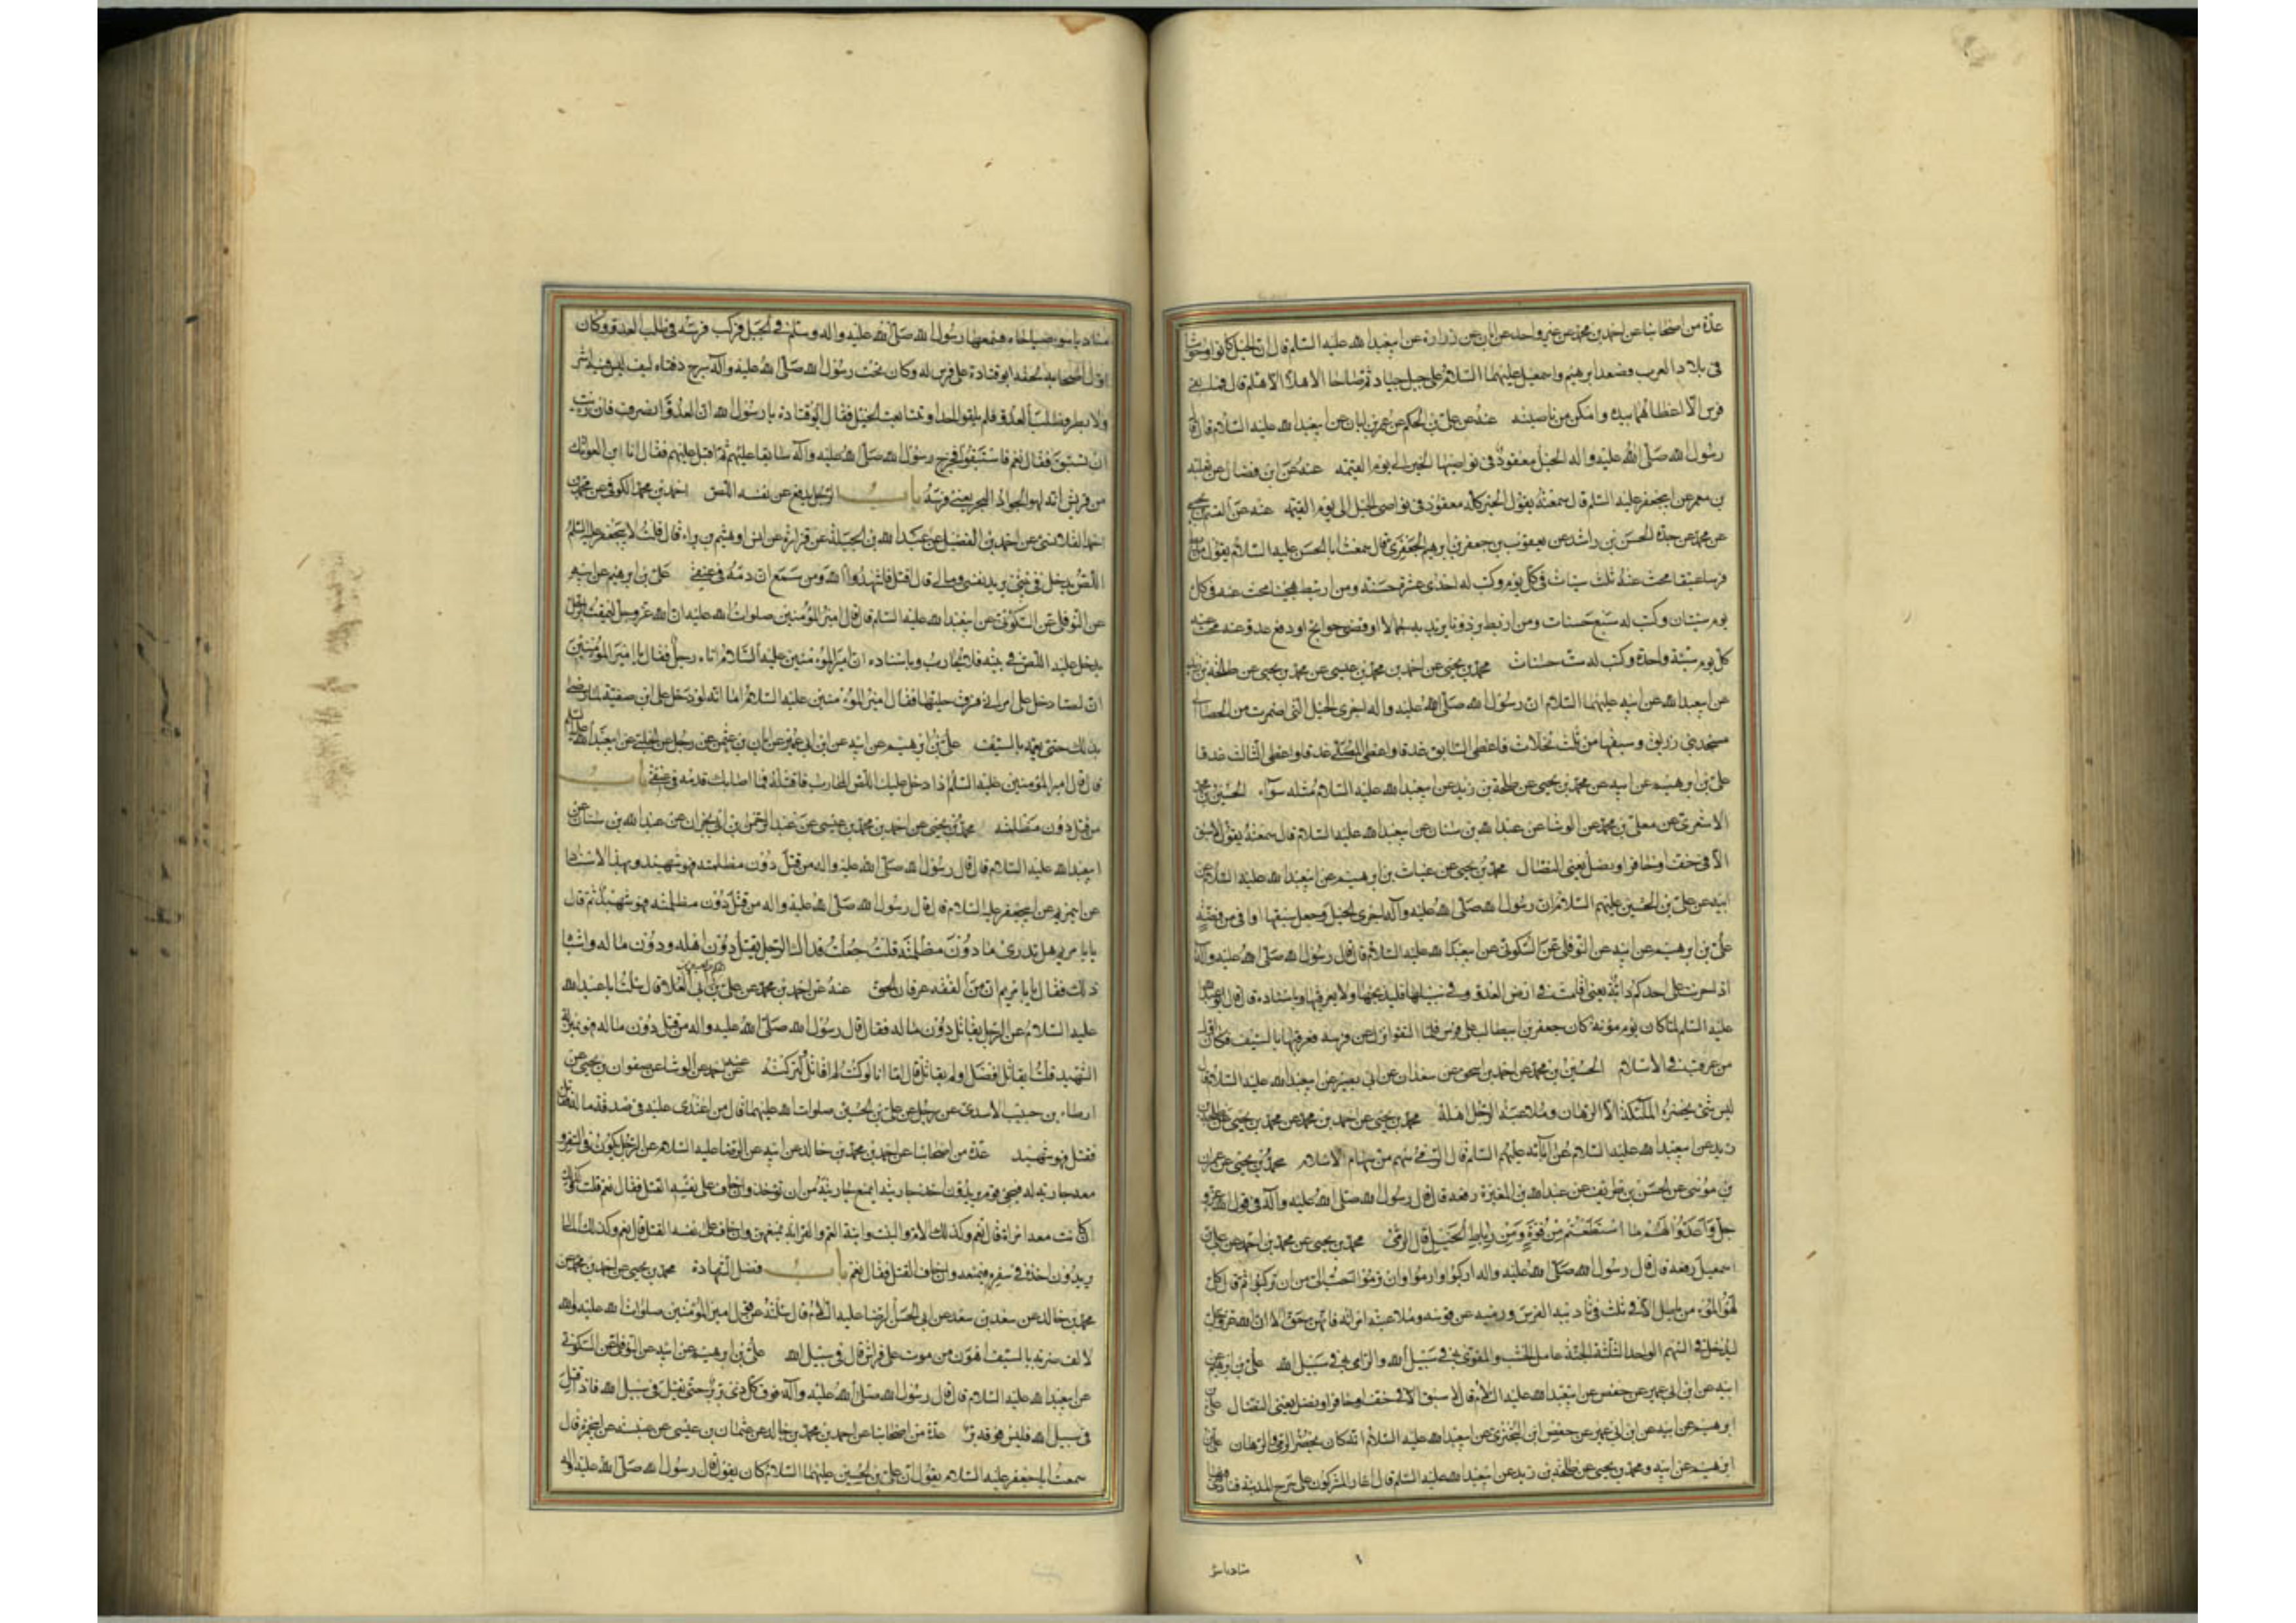 عدة من اصحابنا عن احمد بن محمد عن غير واحد عن ابان عن زرارة عن ابيعبدالله عليه السلم قال ان الخيل كانوا وحوشا
فى بلاد العرب وصعد ابرهيم واسمعيل عليهما السلام على جبل جياد ثم صاحا الا هلا الا هلم قال فما بقى
فرس الا اعطاهما بيده وامكن من ناصيته عنه عن على بن الحكم عن عمر بن ابان عن ابيعبدالله عليه السلام قال قال
رسول الله صلى الله عليه واله الخيل معقود فى نواصيها الخير الى يوم القيمه عنه عن ابن فضال عن ثعلبه
بن معمر عن ابيجعفر عليه السلم قال سمعته يقول الخير كله معقود فى نواصى الخيل الى يوم القيمه عنه عن القسم بن يحيى
عن محمد عن جده الحسن بن راشد عن يعقوب بن جعفر بن ابرهيم الجعفرى قال سمعت ابا الحسن عليه السلام يقول من ربط
فرسا عتيقا محيت عنه ثلث سيئات فى كل يوم وكتب له احدى عشرة حسنة ومن ارتبط هجينا محيت عنه فى كل
يوم سيئتان وكتب له سبع حسنات ومن ارتبط برذونا يريد به جمالا او قضى حوايج او دفع عدو عنه محيت عنه
كل يوم سيئة واحدة وكتب له ست حسنات محمد بن يحيى عن احمد بن محمد بن عيسى عن محمد بن يحيى عن طلحة بن زيد
عن ابيعبدالله عن ابيه عليهما السلام ان رسول الله صلى الله عليه واله اجرى الخيل التى اضمرت من الحصباء
مسجد بنى زريق وسبقها من ثلث نخلات فاعطى السابق عذقا واعطى المصلى عذقا واعطى الثالث عذقا
على بن ابرهيم عن ابيه عن محمد بن يحيى عن طلحة بن زيد عن ابيعبدالله عليه السلام مثله سوآء الحسين بن محمد
الاشعرى عن معلى بن محمد عن الوشا عن عبدالله بن سنان عن ابيعبدالله عليه السلام قال سمعته يقول لا سبق
الا فى خف او حافر او نصل يعنى النضال محمد بن يحيى عن غياث بن ابرهيم عن ابيعبدالله عليه السلام عن
ابيه عن على بن الحسين عليهم السلام ان رسول الله صلى الله عليه وآله اجرى الخيل وجعل سبقها اواقى من فضة
على بن ابرهيم عن ابيه عن النوفلى عن السكونى عن ابيعبدالله عليه السلام قال قال رسول الله صلى الله عليه وآله
اذا حرنت على احدكم دابة يعنى اقامت فى ارض العدو وفى سبيلها فليذبحها ولا يعرقبها وباسناده قال قال ابوعبدالله
عليه السلم لما كان يوم مؤته كان جعفر بن ابيطالب على فرس فلما التقوا نزل عن فرسه فعرقبها بالسيف فكان اول
من عرقب فى الاسلام الحسين بن محمد عن احمد بن اسحق عن سعدان عن ابى بصير عن ابيعبدالله عليه السلام قال
ليس شئ يحضره الملئكة الا الرهان وملاعبة الرجل اهله محمد بن يحيى عن احمد بن محمد عن محمد بن يحيى عن طلحة بن
زيد عن ابيعبدالله عليه السلام عن آبائه عليهم السلم قال الرمى سهم من سهام الاسلام محمد بن يحيى عن عمران
بن موسى عن الحسن بن طريف عن عبدالله بن المغيرة رفعه قال قال رسول الله صلى الله عليه وآله فى قول الله عز و
جل وَاَعِدُّوا لَهُمْ مَا اسْتَطَعْتُمْ مِنْ قُوَّةٍ وَمِنْ رِباطِ الْخَيْلِ قال الرمى محمد بن يحيى عن محمد بن احمد عن على بن
اسمعيل رفعه قال قال رسول الله صلى الله عليه واله اركبوا وارموا وان ترموا احب الى من ان تركبوا ثم قال كل
لهو المؤمن باطل الا فى ثلث فى تاديبه الفرس ورميه عن قوسه وملاعبته امراته فانهن حق الا ان الله عز وجل
ليدخل فى السهم الواحد الثلثة الجنة عامل الخشب والمقوى به فى سبيل الله والرامى به فى سبيل الله على بن ابرهيم عن
ابيه عن ابن ابى عمير عن حفص عن ابيعبدالله عليه السلام قال لا سبق الا فى خف او حافر او نصل يعنى النضال على بن
ابرهيم عن ابيه عن ابن ابى عمير عن حفص ابن البخترى عن ابيعبدالله عليه السلام انه كان يحضر الرمى والرهان على بن
ابرهيم عن ابيه ومحمد بن يحيى عن طلحة بن زيد عن ابيعبدالله عليه السلم قال اغار المشركون على سرح المدينة فنادى فيها
مناد يا سوء صباحاه فسمعها رسول الله صلى الله عليه واله وسلم فى الخيل فركب فرسه فى طلب العدو وكان
اول اصحابه لحقه ابو قتادة على فرس له وكان تحت رسول الله صلى الله عليه وآله سرج دفتاه ليف ليس فيه اشر
ولا بطر فطلب العدو فلم يلقوا احدا وتتابعت الخيل فقال ابو قتادة يا رسول الله ان العدو قد انصرف فان رايت
ان نستبق فقال نعم فاستبقوا فخرج رسول الله صلى الله عليه وآله سابقا عليهم ثم اقبل عليهم فقال انا ابن العواتك
من قريش انه لهو الجواد البحر يعنى فرسه باب الرجل يدفع عن نفسه اللص احمد بن محمد الكوفى عن محمد بن
احمد القلانسى عن احمد بن الفضيل عن عبدالله بن الجبلة عن فزارة عن انس او هيثم بن براء قال قلت لابيجعفر عليه السلم
اللص يدخل فى بيتى يريد نفسى ومالى قال اقتل فاشهد الله ومن سمع ان دمه فى عنقى على بن ابرهيم عن ابيه
عن النوفلى عن السكونى عن ابيعبدالله عليه السلم قال قال امير المؤمنين صلوات الله عليه ان الله عز وجل ليمقت الرجل
يدخل عليه اللص فى بيته فلا يحارب وباسناده ان امير المؤمنين عليه السلام اتاه رجل فقال يا امير المؤمنين
ان لصا دخل على امراتى فسرق حليتها فقال امير المؤمنين عليه السلام اما انه لو دخل على ابن صفية لما رضى
بذلك حتى يعمه بالسيف على بن ابرهيم عن ابيه عن ابن ابى عمير عن ابان بن عثمن عن رجل عن الحلبى عن ابيعبدالله عليه السلم
قال قال امير المؤمنين عليه السلم اذا دخل عليك اللص المحارب فاقتله فما اصابك فدمه فى عنقى باب
من قتل دون مظلمته محمد بن يحيى عن احمد بن محمد بن عيسى عن عبد الرحمن بن ابى نجران عن عبدالله بن سنان عن
ابيعبدالله عليه السلام قال قال رسول الله صلى الله عليه واله من قتل دون مظلمته فهو شهيد وبهذا الاسناد
عن ابيمريم عن ابيجعفر عليه السلام قال قال رسول الله صلى الله عليه واله من قتل دون مظلمته فهو شهيد ثم قال
يابا مريم هل تدرى ما دون مظلمته قلت جعلت فداك الرجل يقتل دون اهله ودون ماله واشباه
ذلك فقال يابا مريم ان من الفقه عرفان الحق عنه عن احمد بن محمد عن على بن الحكم عن الحسين بن ابى العلا قال سئلت ابا عبدالله
عليه السلام عن الرجل يقاتل دون ماله فقال قال رسول الله صلى الله عليه واله من قتل دون ماله فهو بمنزلة
الشهيد قلت ايقاتل افضل او لم يقاتل قال اما انا لو كنت لم اقاتل وتركته عنه عن احمد عن الوشا عن صفوان بن يحيى عن
ارطاه بن حبيب الاسدى عن رجل عن على بن الحسين صلوات الله عليهما قال من اعتدى عليه فى صدقة ماله فقاتل
فقتل فهو شهيد عدة من اصحابنا عن احمد بن محمد بن خالد عن ابيه عن الرضا عليه السلام عن الرجل يكون فى السفر و
معه جارية له فيجئ قوم يريدون اخذ جاريته ايمنع جاريته من ان توخذ وان خاف على نفسه القتل فقال نعم قلت وكذلك
ان كانت معه امراة قال نعم وكذلك الام والبنت وابنة العم والقرابة يمنعهن وان خاف على نفسه القتل قال نعم وكذلك المال
يريدون اخذه فى سفره فيمنعه وان خاف القتل فقال نعم باب فضل الشهادة محمد بن يحيى عن احمد بن محمد عن
محمد بن خالد عن سعد بن سعد عن ابى الحسن الرضا عليه السلام قال سئلته عن قول امير المؤمنين صلوات الله عليه والله
لالف ضربة بالسيف اهون من موت على فراش قال فى سبيل الله على بن ابرهيم عن ابيه عن النوفلى عن السكونى
عن ابيعبدالله عليه السلام قال قال رسول الله صلى الله عليه وآله فوق كل ذى بر بر حتى يقتل فى سبيل الله فاذا قتل
فى سبيل الله فليس فوقه بر عدة من اصحابنا عن احمد بن محمد بن خالد عن عثمان بن عيسى عن عنبسه عن ابيحمزه قال
سمعت ابا جعفر عليه السلام يقول ان على بن الحسين عليهما السلام كان يقول قال رسول الله صلى الله عليه واله